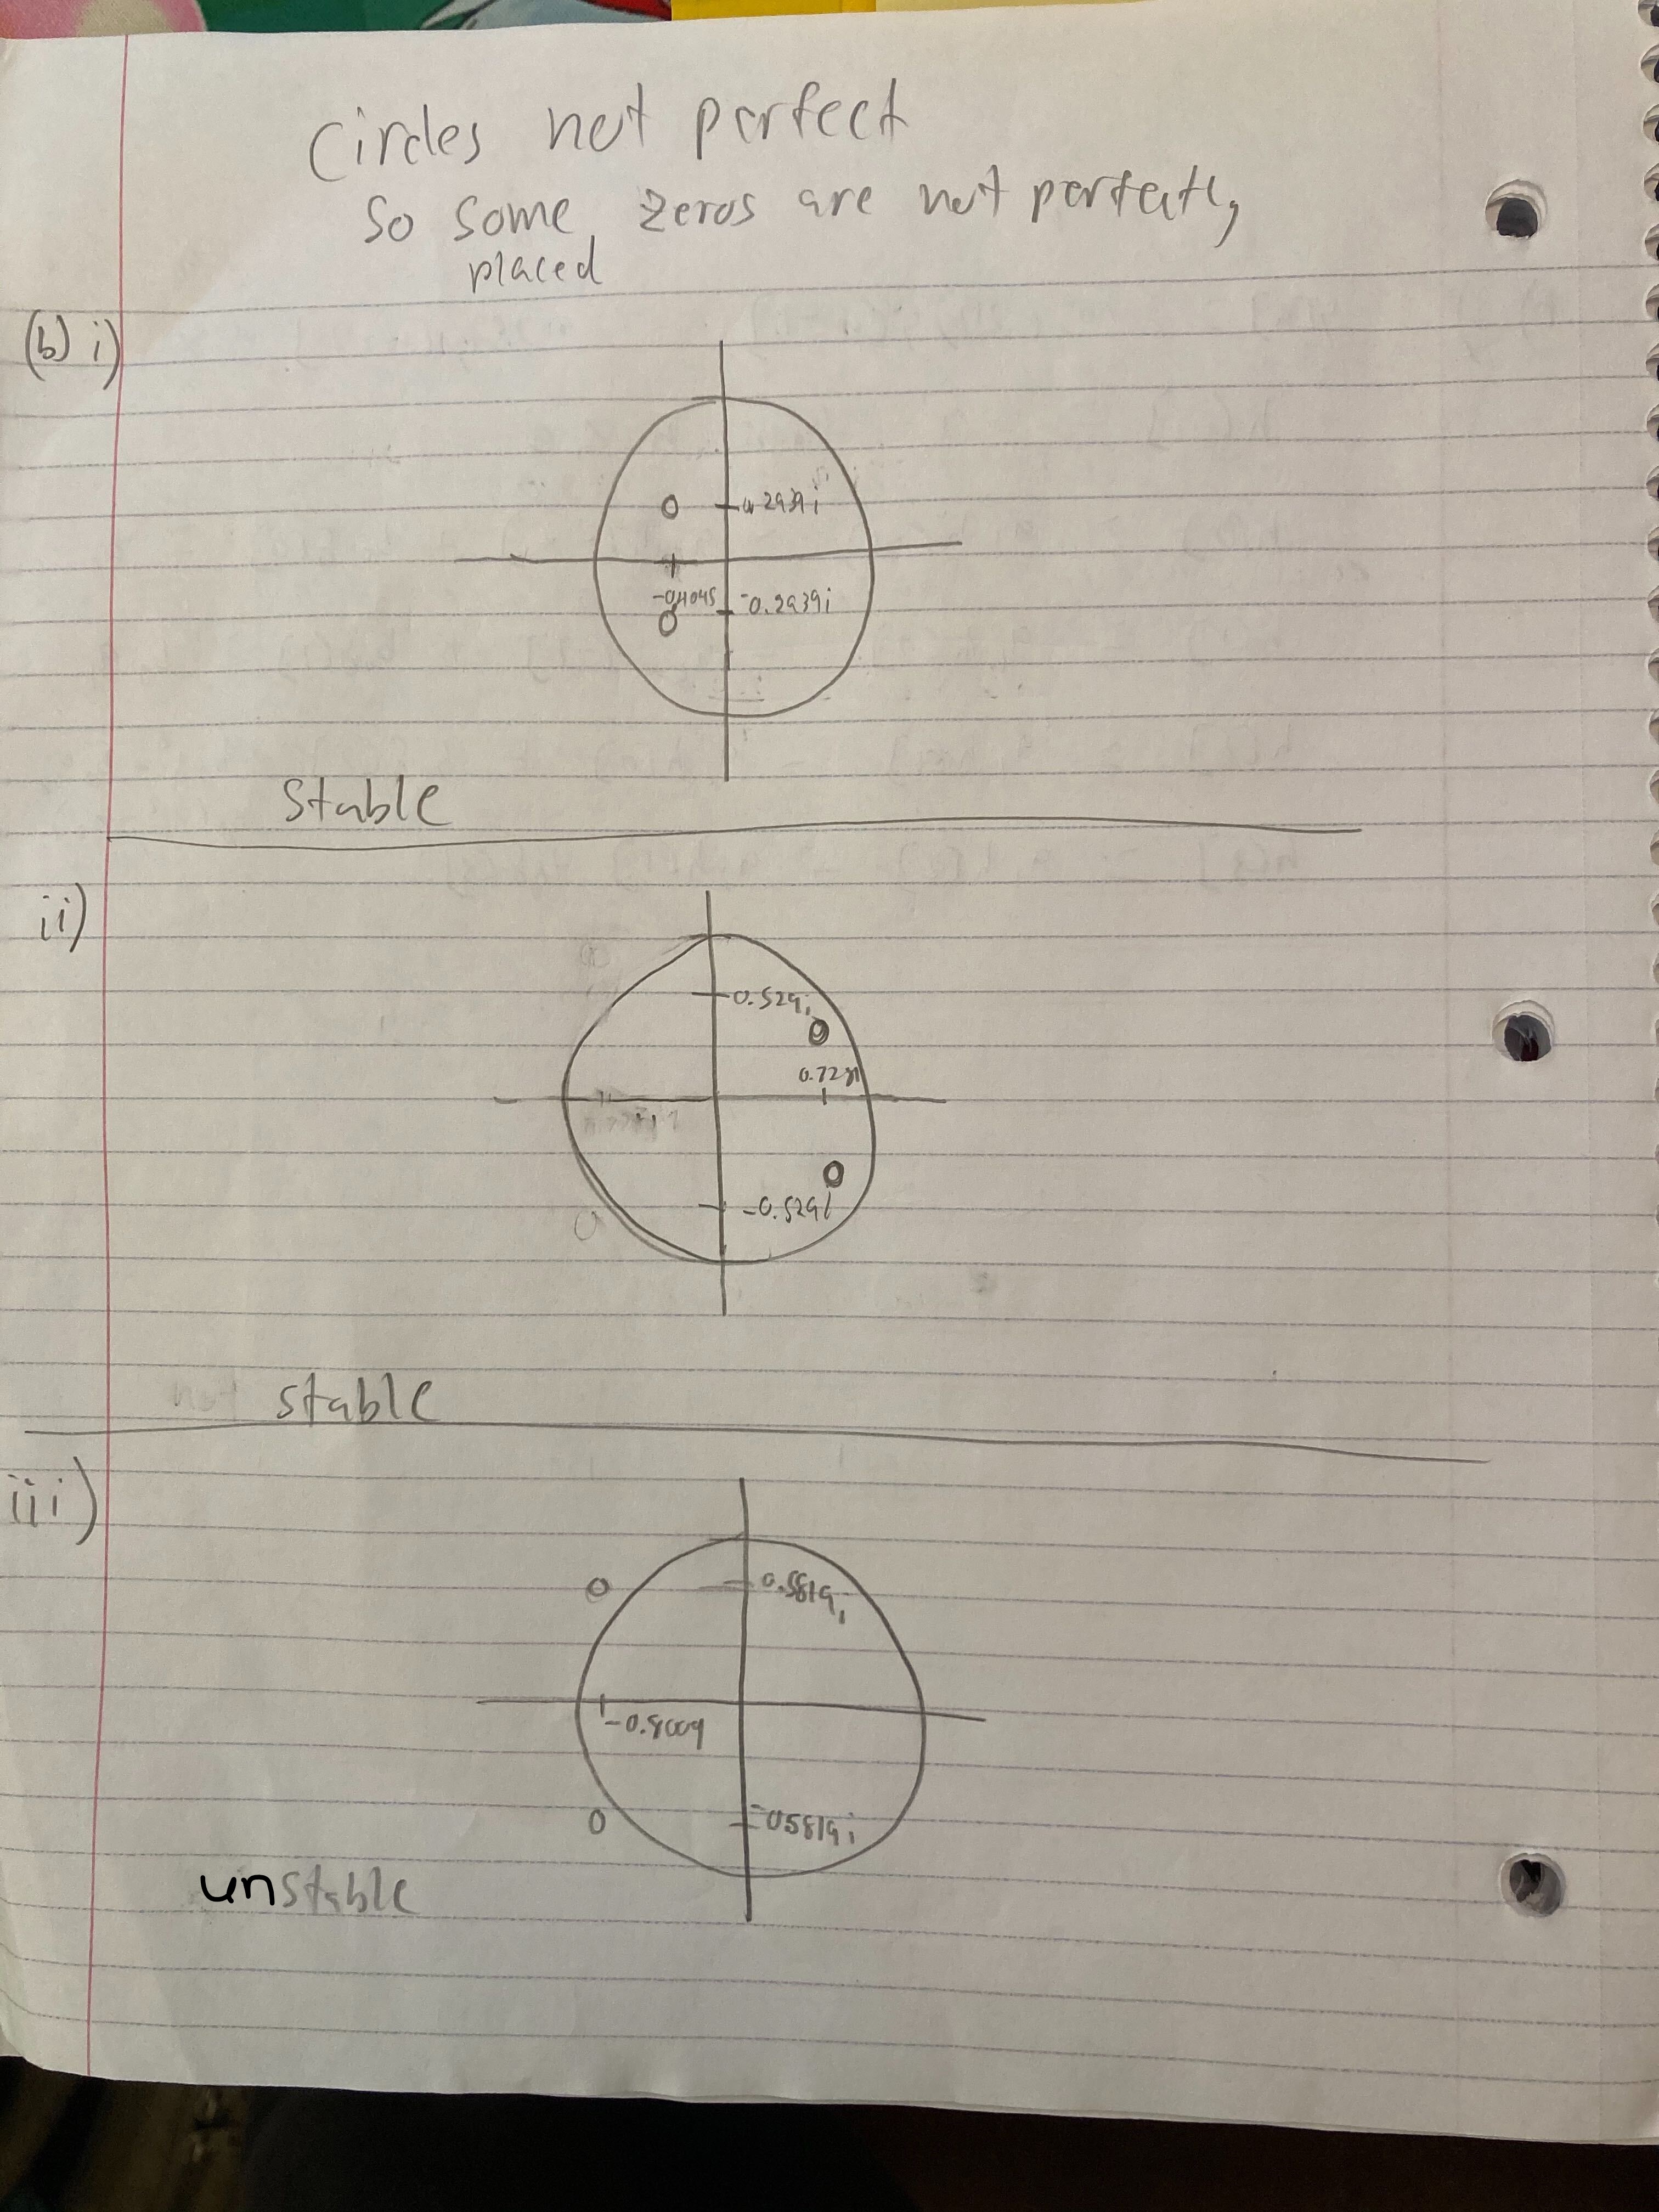 Circles not perfect
so some zeros are not perfectly
placed
(b) i)
0.2939i
-0.4045
-0.2939i
Stable
ii)
0.529i
0.7281
-0.529i
stable
iii)
0.5819i
-0.8009
-0.5819i
unstable